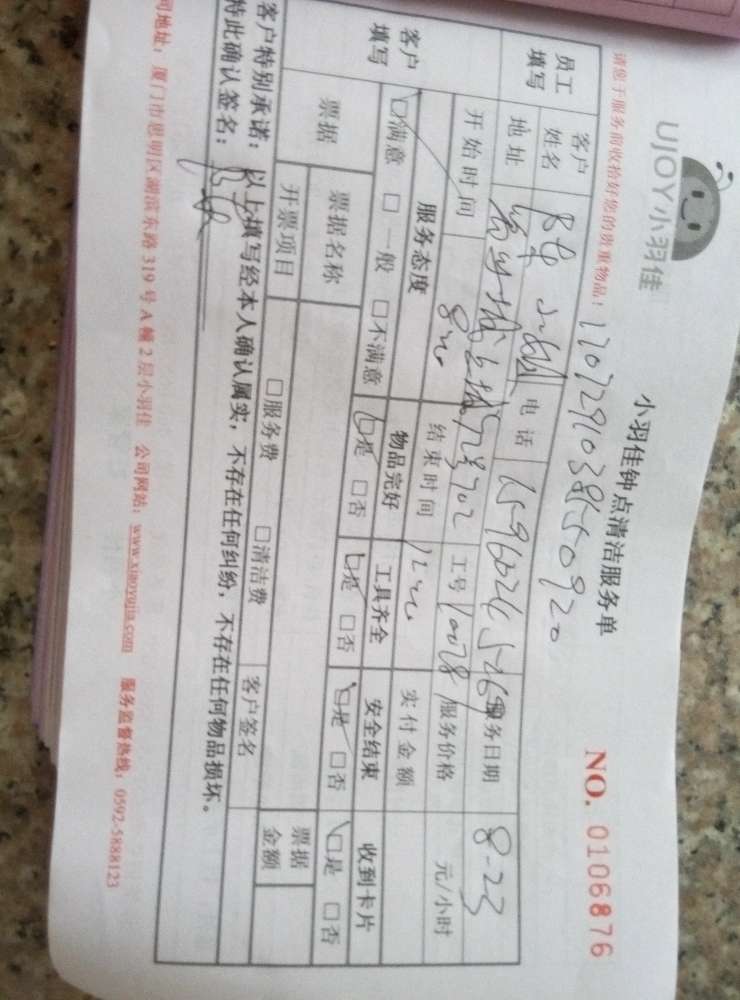 UJOY小羽佳
小羽佳钟点清洁服务单
NO. 0106876
请您于服务前收拾好您的贵重物品！
员工填写 客户姓名 小姐 电话 服务日期 8-23
地址 702 工号 10078 服务价格 元/小时
开始时间 结束时间 实付金额
客户填写 服务态度 物品完好 工具齐全 安全结束 收到卡片
□满意 □一般 □不满意 □是 □否 □是 □否 □是 □否 □是 □否
票据 票据名称 票据金额
开票项目 □服务费 □清洁费 客户签名
客户特别承诺： 以上填写经本人确认属实，不存在任何纠纷，不存在任何物品损坏。
特此确认签名：
司地址：厦门市思明区湖滨东路 319 号 A 幢 2 层小羽佳 公司网站：www.xiaoyujia.com 服务监督热线：0592-5888123